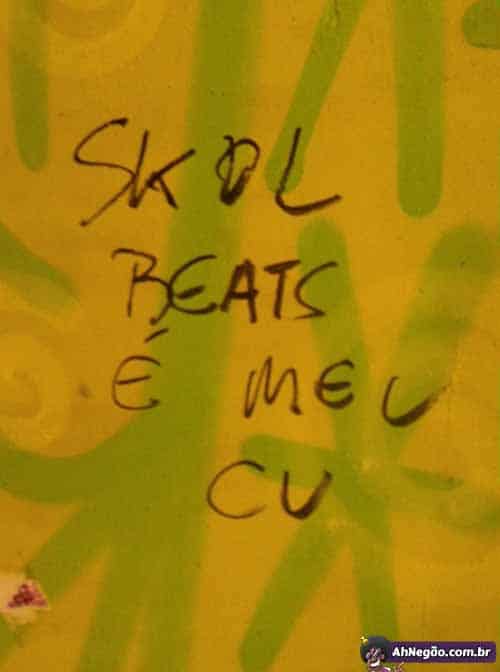 SKOL
BEATS
É MEU
CU
AhNegão.com.br